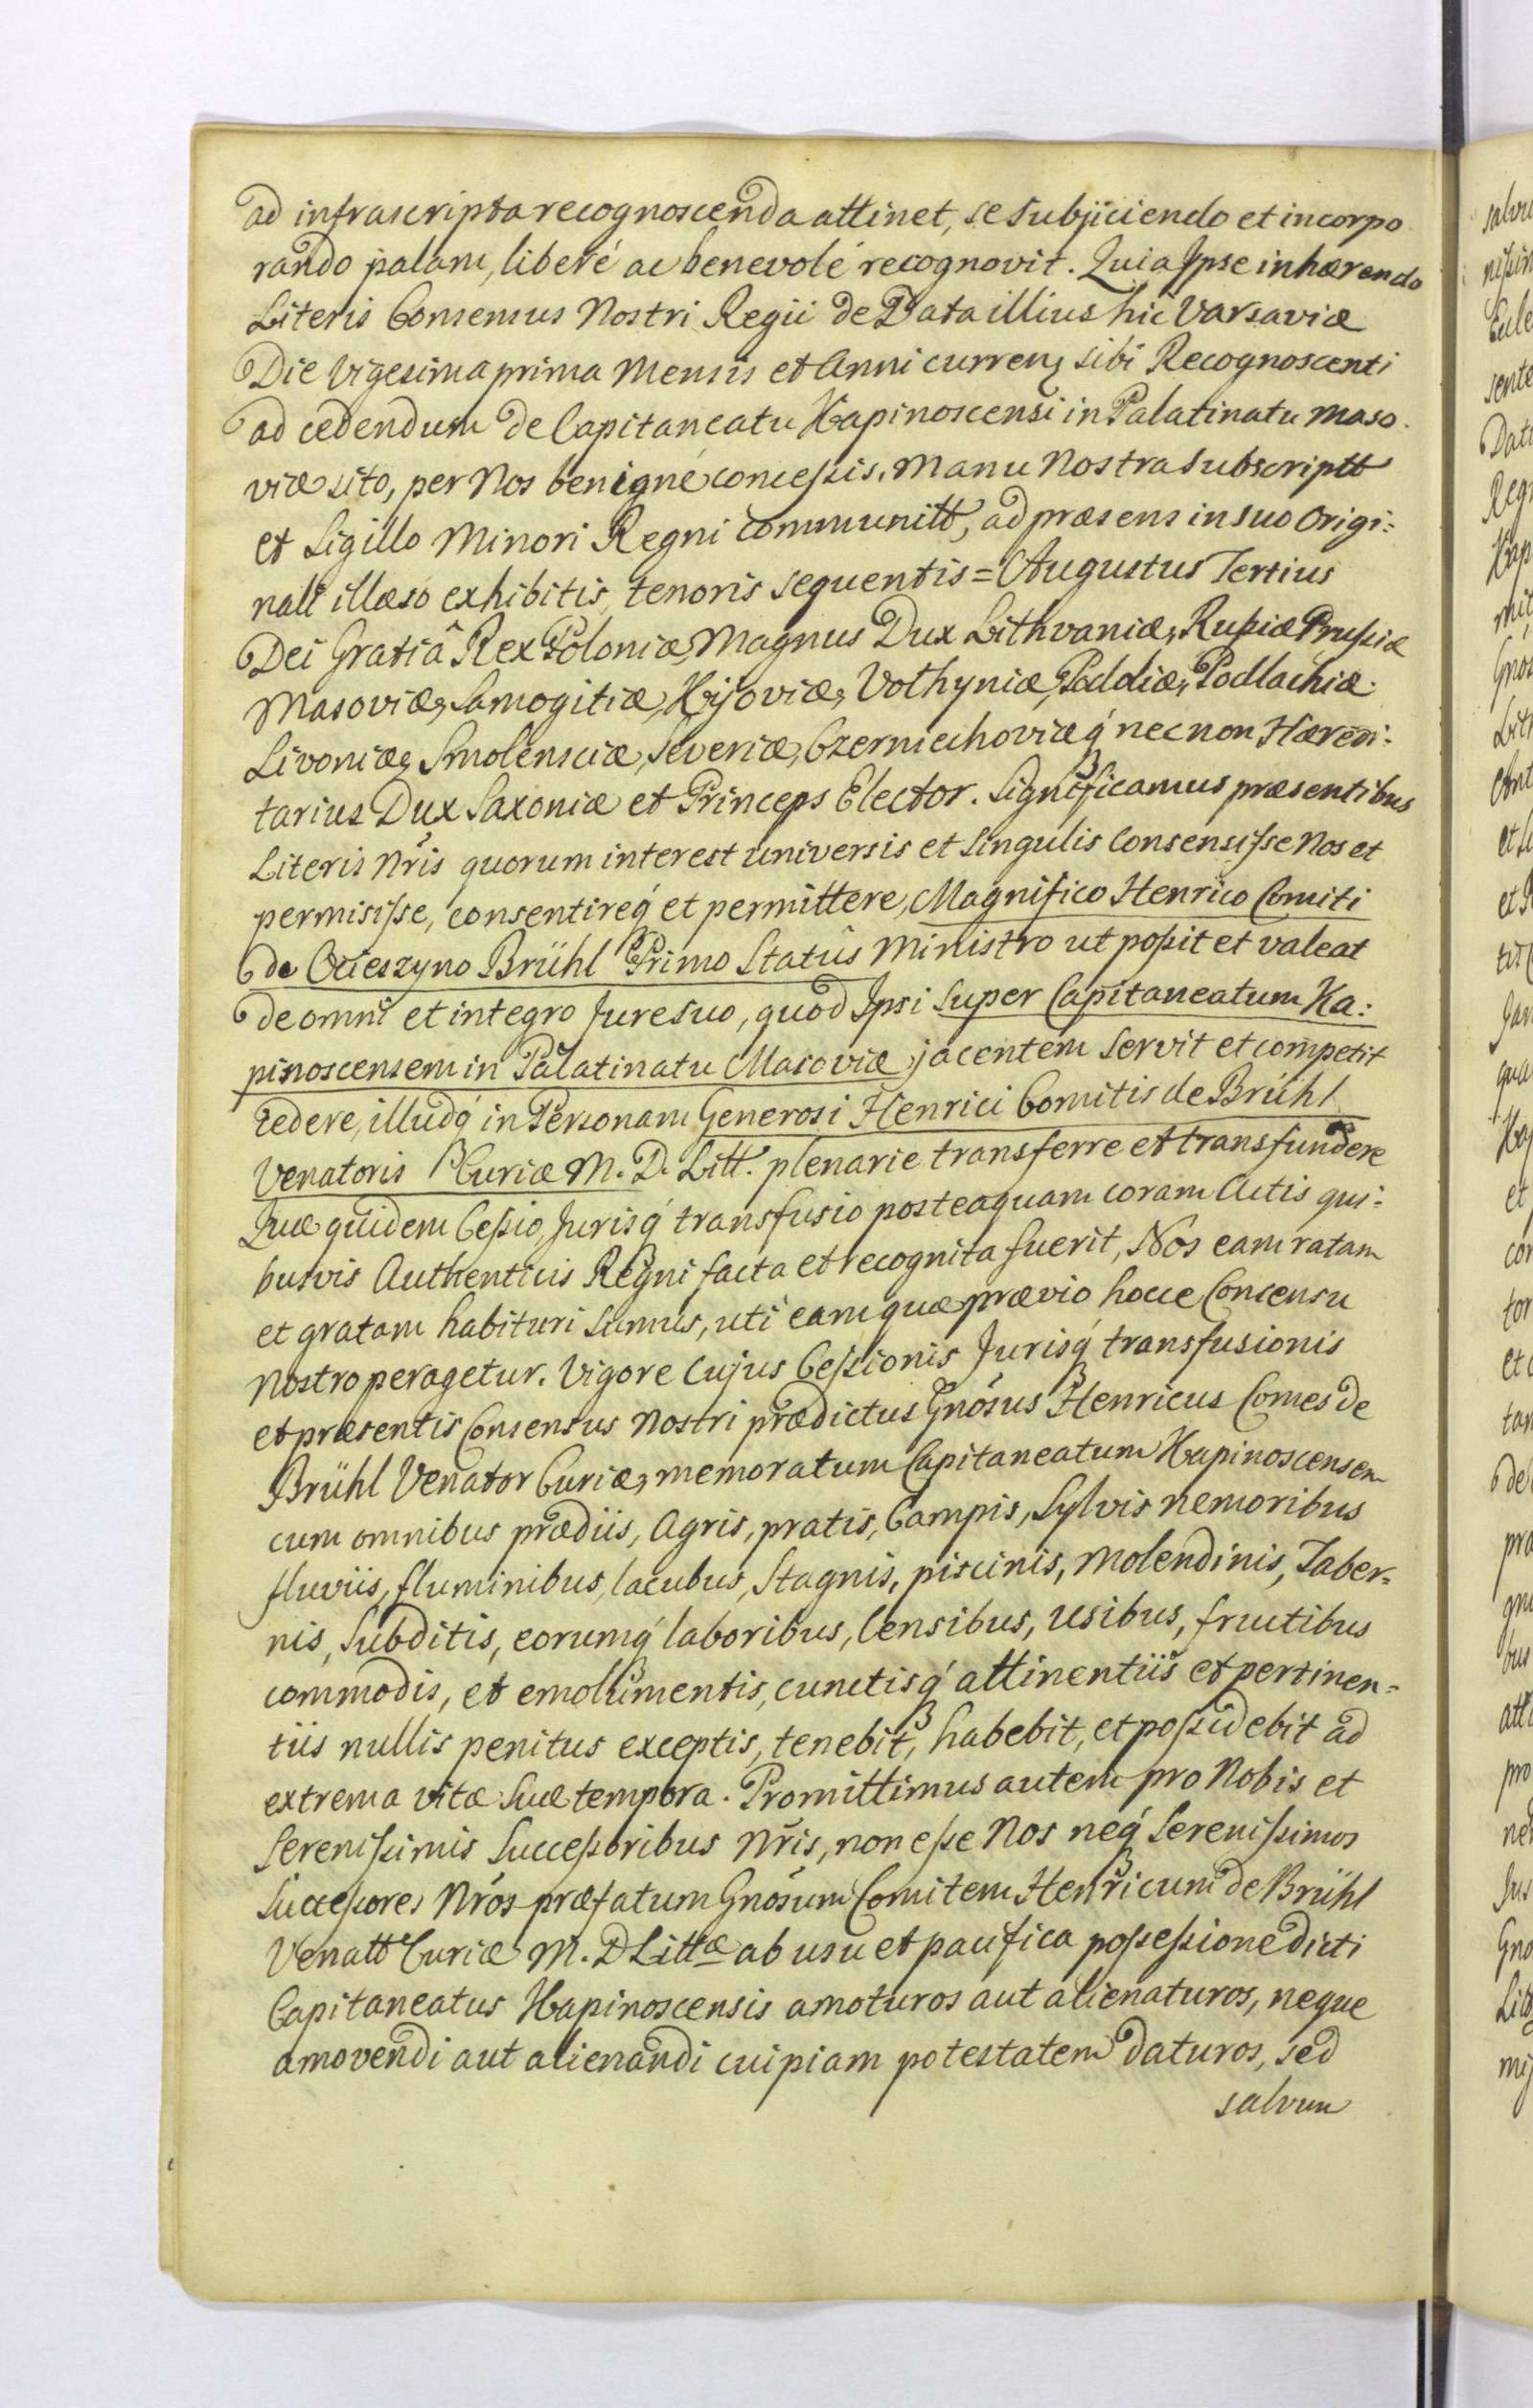 ad infrascripta recognoscenda attinet, se subjiciendo et incorpo
rando palam, liberé ac benevolé recognovit. Quia Ipse inhærendo
Literis Consensus Nostri Regii de Data illius hic Varsaviæ
Die Vigesima prima Mensis et Anni curren sibi Recognoscenti
ad cedendum de Capitaneatu Kapinoscensi in Palatinatu Maso
viæ sito, per Nos benigné concessis, Manu Nostra Subscriptt
et Sigillo Minori Regni communitt, ad præsens in suo Origi:
nali illæso exhibitis, tenoris sequentis = Augustus Tertius
Dei Gratiâ Rex Poloniæ, Magnus Dux Lithvaniæ, Russiæ Prussiæ
Masoviæ, Samogitiæ, Kijoviæ, Volhyniæ, Podoliæ, Podlachiæ
Livoniæ, Smolensciæ, Severiæ, Czerniechoviæq́ nec non Hæredi:
tarius Dux Saxoniæ et Princeps Elector. Significamus præsentibus
Literis Nris quorum interest universis et singulis Consensisse Nos et
permisisse, consentireq́ et permittere, Magnifico Henrico Comiti
de Ocieszyno Brühl Primo Statûs Ministro ut possit et valeat
de omni et integro Jure suo, quod Ipsi super Capitaneatum Ka:
pinoscensem in Palatinatu Masoviæ jacentem servit et competit
cedere, illudq́ in Personam Generosi Henrici Comitis de Brühl
Venatoris Curiæ M. D. Litt. plenarie transferre et transfundere
Quæ quidem Cessio, Jurisq́ transfusio posteaquam coram Actis qui:
busvis Authenticis Regni facta et recognita fuerit, Nos eam ratam
et gratam habituri sumus, uti eam quæ prævio hocce Consensu
Nostro peragetur. Vigore Cujus Cessionis Jurisq́ transfusionis
et præsentis Consensus Nostri prædictus Gnosus Henricus Comes de
Brühl Venator Curiæ, memoratum Capitaneatum Kapinoscensem
cum omnibus prædiis, Agris, pratis, Campis, Sylvis nemoribus
fluviis, fluminibus, lacubus, Stagnis, piscinis, Molendinis, Taber=
nis, Subditis, eorumq́ laboribus, Censibus, usibus, fructibus
commodis, et emolumentis, cunctisq́ attinentiis et pertinen=
tiis nullis penitus exceptis, tenebit, habebit, et possidebit ad
extrema vitæ suæ tempora. Promittimus autem pro Nobis et
Serenissimis Successoribus Nris, non esse Nos neq́ Serenissimos
Successores Nros præfatum Gnosum Comitem Henricum de Brühl
Venatt Curiæ M. D Littæ ab usu et pacifica possessione dicti
Capitaneatus Kapinoscensis amoturos aut alienaturos, neque
amovendi aut alienandi cuipiam potestatem daturos, sed
salvum